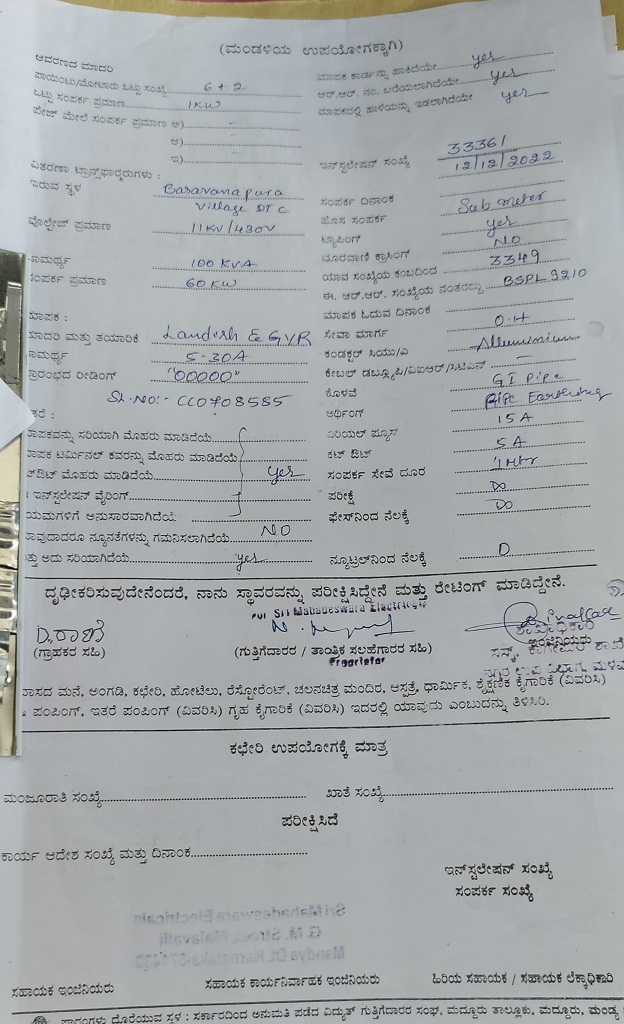 (ಮಂಡಳಿಯ ಉಪಯೋಗಕ್ಕಾಗಿ)
ಆವರಣದ ಮಾದರಿ
ಮಾಪಕ ಕಾರ್ಡನ್ನು ಹಾಕಿದೆಯೇ yes
ಪಾಯಿಂಟು/ಮೋಟಾರು ಒಟ್ಟು ಸಂಖ್ಯೆ 6 + 2
ಆರ್.ಆರ್. ನಂ. ಬರೆಯಲಾಗಿದೆಯೇ yes
ಒಟ್ಟು ಸಂಪರ್ಕ ಪ್ರಮಾಣ 1KW
ಮಾಪಕದಲ್ಲಿ ಹಾಳೆಯನ್ನು ಇಡಲಾಗಿದೆಯೇ yes
ಪೇಜ್ ಮೇಲೆ ಸಂಪರ್ಕ ಪ್ರಮಾಣ ಅ)
ಆ)
ಇ)
ಇನ್‌ಸ್ಟಲೇಷನ್ ಸಂಖ್ಯೆ 33361
12/12/2022
ವಿತರಣಾ ಟ್ರಾನ್ಸ್‌ಫಾರ್ಮರುಗಳು :
ಇರುವ ಸ್ಥಳ Basavanapura
Village DTC
ಸಂಪರ್ಕ ದಿನಾಂಕ Sub meter
ಹೊಸ ಸಂಪರ್ಕ yes
ವೋಲ್ಟೇಜ್ ಪ್ರಮಾಣ 11KV/430V
ಟ್ಯಾಪಿಂಗ್ NO
ದೂರವಾಣಿ ಕ್ರಾಸಿಂಗ್ 3349
ಸಾಮರ್ಥ್ಯ 100 KVA
ಯಾವ ಸಂಖ್ಯೆಯ ಕಂಬದಿಂದ
ಸಂಪರ್ಕ ಪ್ರಮಾಣ 60 KW
ಈ. ಆರ್.ಆರ್. ಸಂಖ್ಯೆಯ ನಂತರದ್ದು BSPL 9210
ಮಾಪಕ :
ಮಾಪಕ ಓದುವ ದಿನಾಂಕ
ಮಾದರಿ ಮತ್ತು ತಯಾರಿಕೆ Landish & GYR
ಸೇವಾ ಮಾರ್ಗ O.H
ಸಾಮರ್ಥ್ಯ 5-30A
ಕಂಡಕ್ಟರ್ Alluminium
ಪ್ರಾರಂಭದ ರೀಡಿಂಗ್ "00000"
ಕೇಬಲ್
Sl.NO:- CC0708585
ಕೊಳವೆ GI Pipe
ಅರ್ಥಿಂಗ್ Pipe Earthing
ಇತರೆ :
ಮಾಪಕವನ್ನು ಸರಿಯಾಗಿ ಮೊಹರು ಮಾಡಿದೆಯೆ
ಏರಿಯಲ್ ಫ್ಯೂಸ್ 15A
ಮಾಪಕ ಟರ್ಮಿನಲ್ ಕವರನ್ನು ಮೊಹರು ಮಾಡಿದೆಯೆ
ಕಟ್ ಔಟ್ 5A
ಕಟ್‌ಔಟ್ ಮೊಹರು ಮಾಡಿದೆಯೆ yes
ಸಂಪರ್ಕ ಸೇವೆ ದೂರ 1Mtr
ಇನ್‌ಸ್ಟಲೇಷನ್ ವೈರಿಂಗ್
ಪರೀಕ್ಷೆ Do
ನಿಯಮಗಳಿಗೆ ಅನುಸಾರವಾಗಿದೆಯೆ
ಫೇಸ್‌ನಿಂದ ನೆಲಕ್ಕೆ Do
ಯಾವುದಾದರೂ ನ್ಯೂನತೆಗಳನ್ನು ಗಮನಿಸಲಾಗಿದೆಯೆ NO
ಮತ್ತು ಅದು ಸರಿಯಾಗಿದೆಯೆ yes
ನ್ಯೂಟ್ರಲ್‌ನಿಂದ ನೆಲಕ್ಕೆ D
ದೃಢೀಕರಿಸುವುದೇನೆಂದರೆ, ನಾನು ಸ್ಥಾವರವನ್ನು ಪರೀಕ್ಷಿಸಿದ್ದೇನೆ ಮತ್ತು ರೇಟಿಂಗ್ ಮಾಡಿದ್ದೇನೆ.
For Sri Mahadeswara Electricals
D.ರಾಣಿ
(ಗ್ರಾಹಕರ ಸಹಿ)
(ಗುತ್ತಿಗೆದಾರರ / ತಾಂತ್ರಿಕ ಸಲಹೆಗಾರರ ಸಹಿ)
ಇಂಜಿನಿಯರು
Proprietor
ವಾಸದ ಮನೆ, ಅಂಗಡಿ, ಕಛೇರಿ, ಹೋಟೆಲು, ರೆಸ್ಟೋರೆಂಟ್, ಚಲನಚಿತ್ರ ಮಂದಿರ, ಆಸ್ಪತ್ರೆ, ಧಾರ್ಮಿಕ, ಶೈಕ್ಷಣಿಕ ಕೈಗಾರಿಕೆ (ವಿವರಿಸಿ)
ಪಂಪಿಂಗ್, ಇತರೆ ಪಂಪಿಂಗ್ (ವಿವರಿಸಿ) ಗೃಹ ಕೈಗಾರಿಕೆ (ವಿವರಿಸಿ) ಇದರಲ್ಲಿ ಯಾವುದು ಎಂಬುದನ್ನು ತಿಳಿಸಿರಿ.
ಕಛೇರಿ ಉಪಯೋಗಕ್ಕೆ ಮಾತ್ರ
ಮಂಜೂರಾತಿ ಸಂಖ್ಯೆ
ಖಾತೆ ಸಂಖ್ಯೆ
ಪರೀಕ್ಷಿಸಿದೆ
ಕಾರ್ಯ ಆದೇಶ ಸಂಖ್ಯೆ ಮತ್ತು ದಿನಾಂಕ
ಇನ್‌ಸ್ಟಲೇಷನ್ ಸಂಖ್ಯೆ
ಸಂಪರ್ಕ ಸಂಖ್ಯೆ
Sri Mahadeswara Electricals
G. M. Street, Malavalli
Mandya Dt. Karnataka-571430
ಸಹಾಯಕ ಇಂಜಿನಿಯರು
ಸಹಾಯಕ ಕಾರ್ಯನಿರ್ವಾಹಕ ಇಂಜಿನಿಯರು
ಹಿರಿಯ ಸಹಾಯಕ / ಸಹಾಯಕ ಲೆಕ್ಕಾಧಿಕಾರಿ
ಫಾರಂಗಳು ದೊರೆಯುವ ಸ್ಥಳ : ಸರ್ಕಾರದಿಂದ ಅನುಮತಿ ಪಡೆದ ವಿದ್ಯುತ್ ಗುತ್ತಿಗೆದಾರರ ಸಂಘ, ಮದ್ದೂರು ತಾಲ್ಲೂಕು, ಮದ್ದೂರು, ಮಂಡ್ಯ